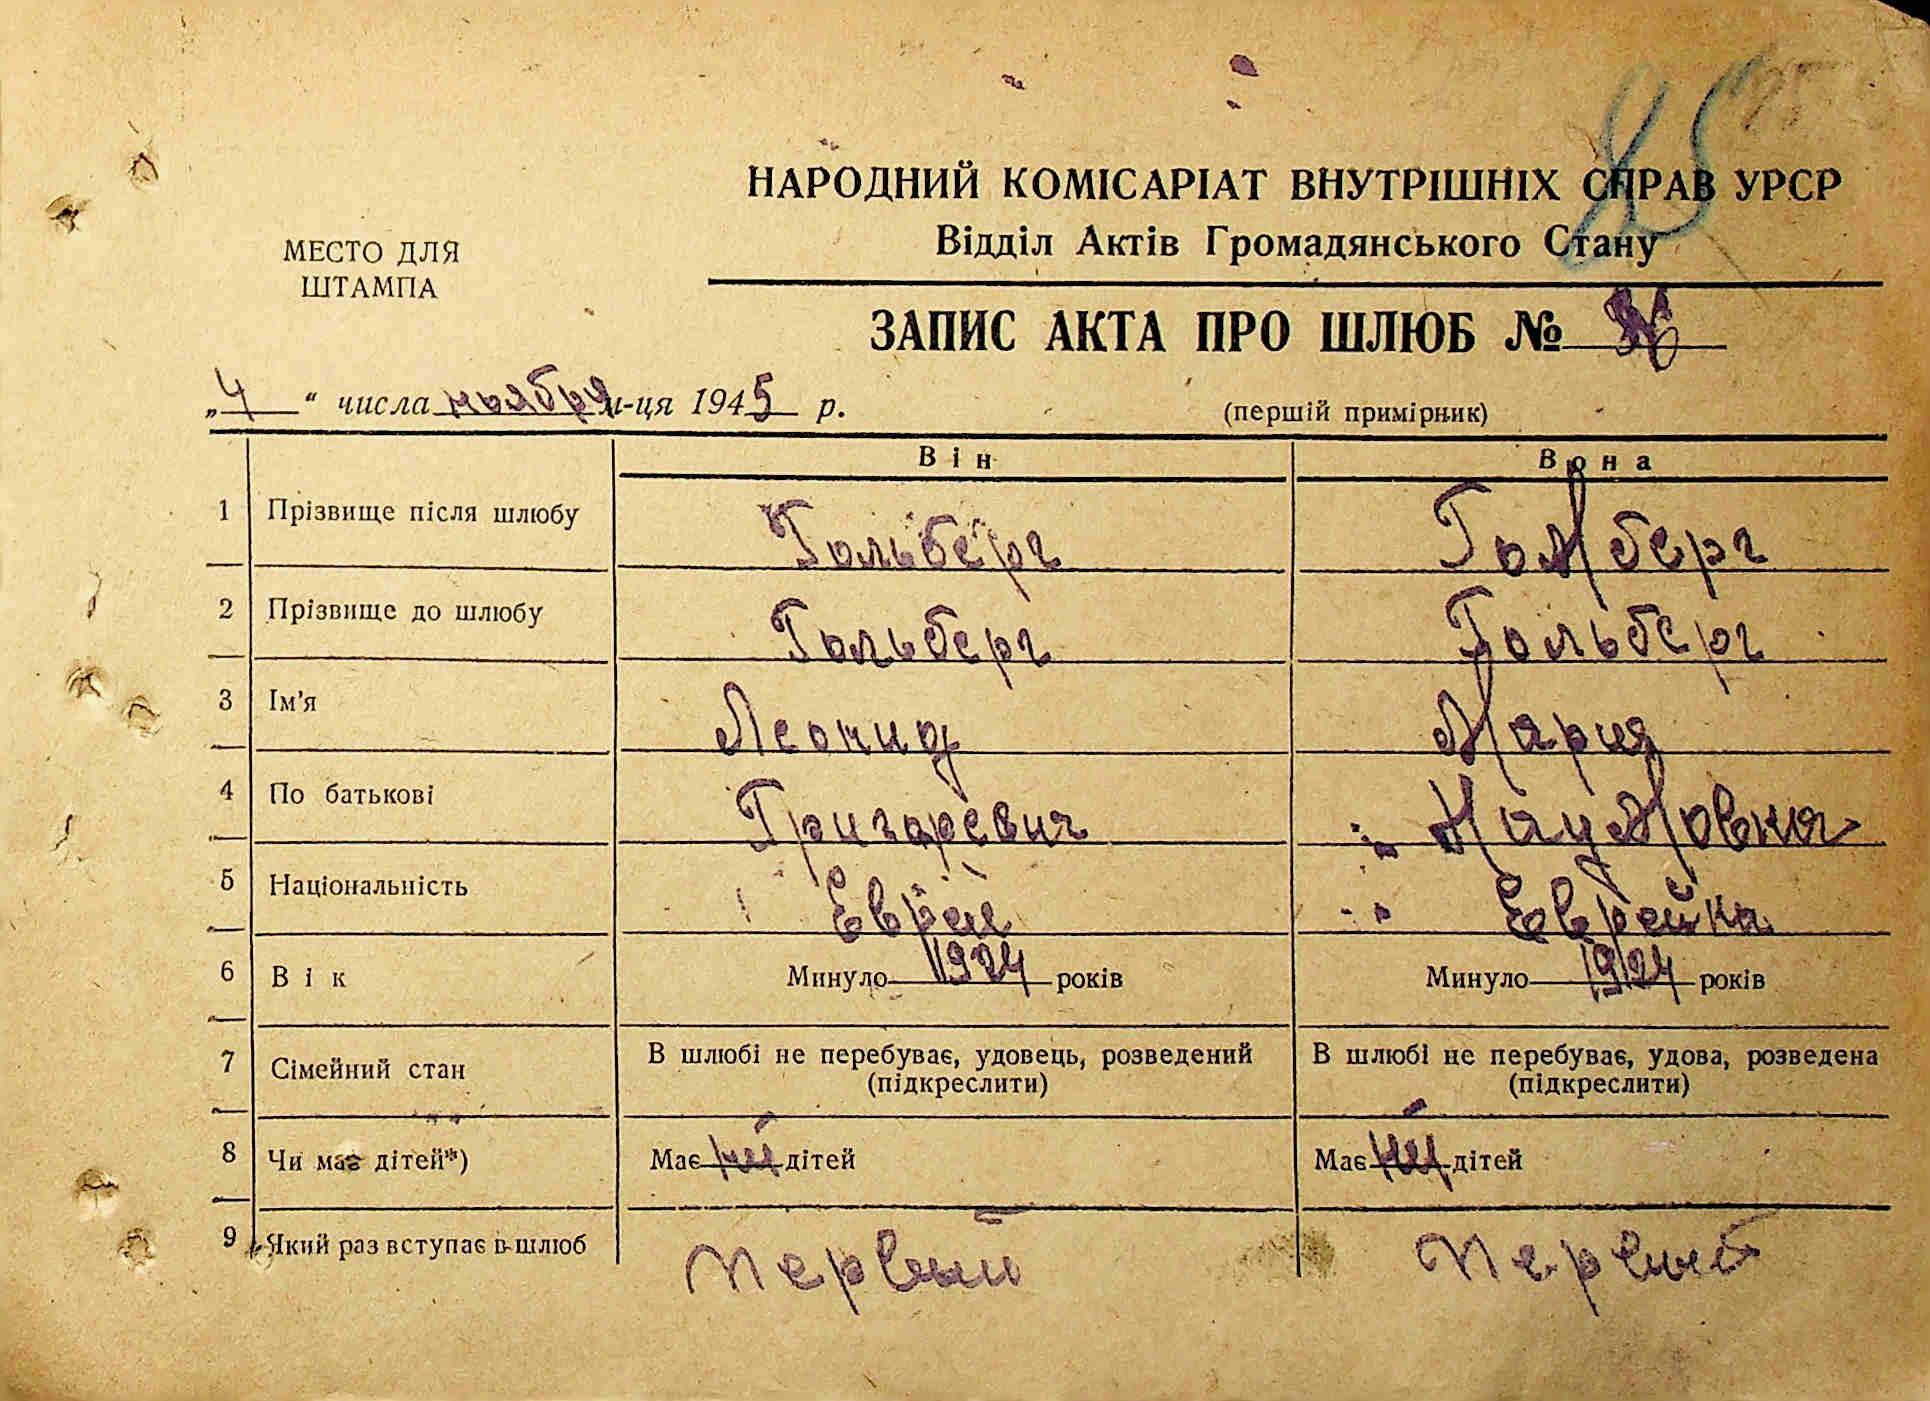 85
НАРОДНИЙ КОМІСАРІАТ ВНУТРІШНІХ СПРАВ УРСР
Відділ Актів Громадянського Стану
МЕСТО ДЛЯ
ШТАМПА
ЗАПИС АКТА ПРО ШЛЮБ №
„4“ числа ноября м-ця 1945 р. (першій примірник)
Він Вона
1 Прізвище після шлюбу Гольберг Гольберг
2 Прізвище до шлюбу Гольберг Гольберг
3 Ім'я Леонид Мария
4 По батькові Григоревич Наумовня
5 Національність Еврей Еврейка
6 Вік Минуло 1924 років Минуло 1924 років
7 Сімейний стан В шлюбі не перебуває, удовець, розведений (підкреслити) В шлюбі не перебуває, удова, розведена (підкреслити)
8 Чи має дітей*) Має дітей Має дітей
9 Який раз вступає в шлюб первый первый